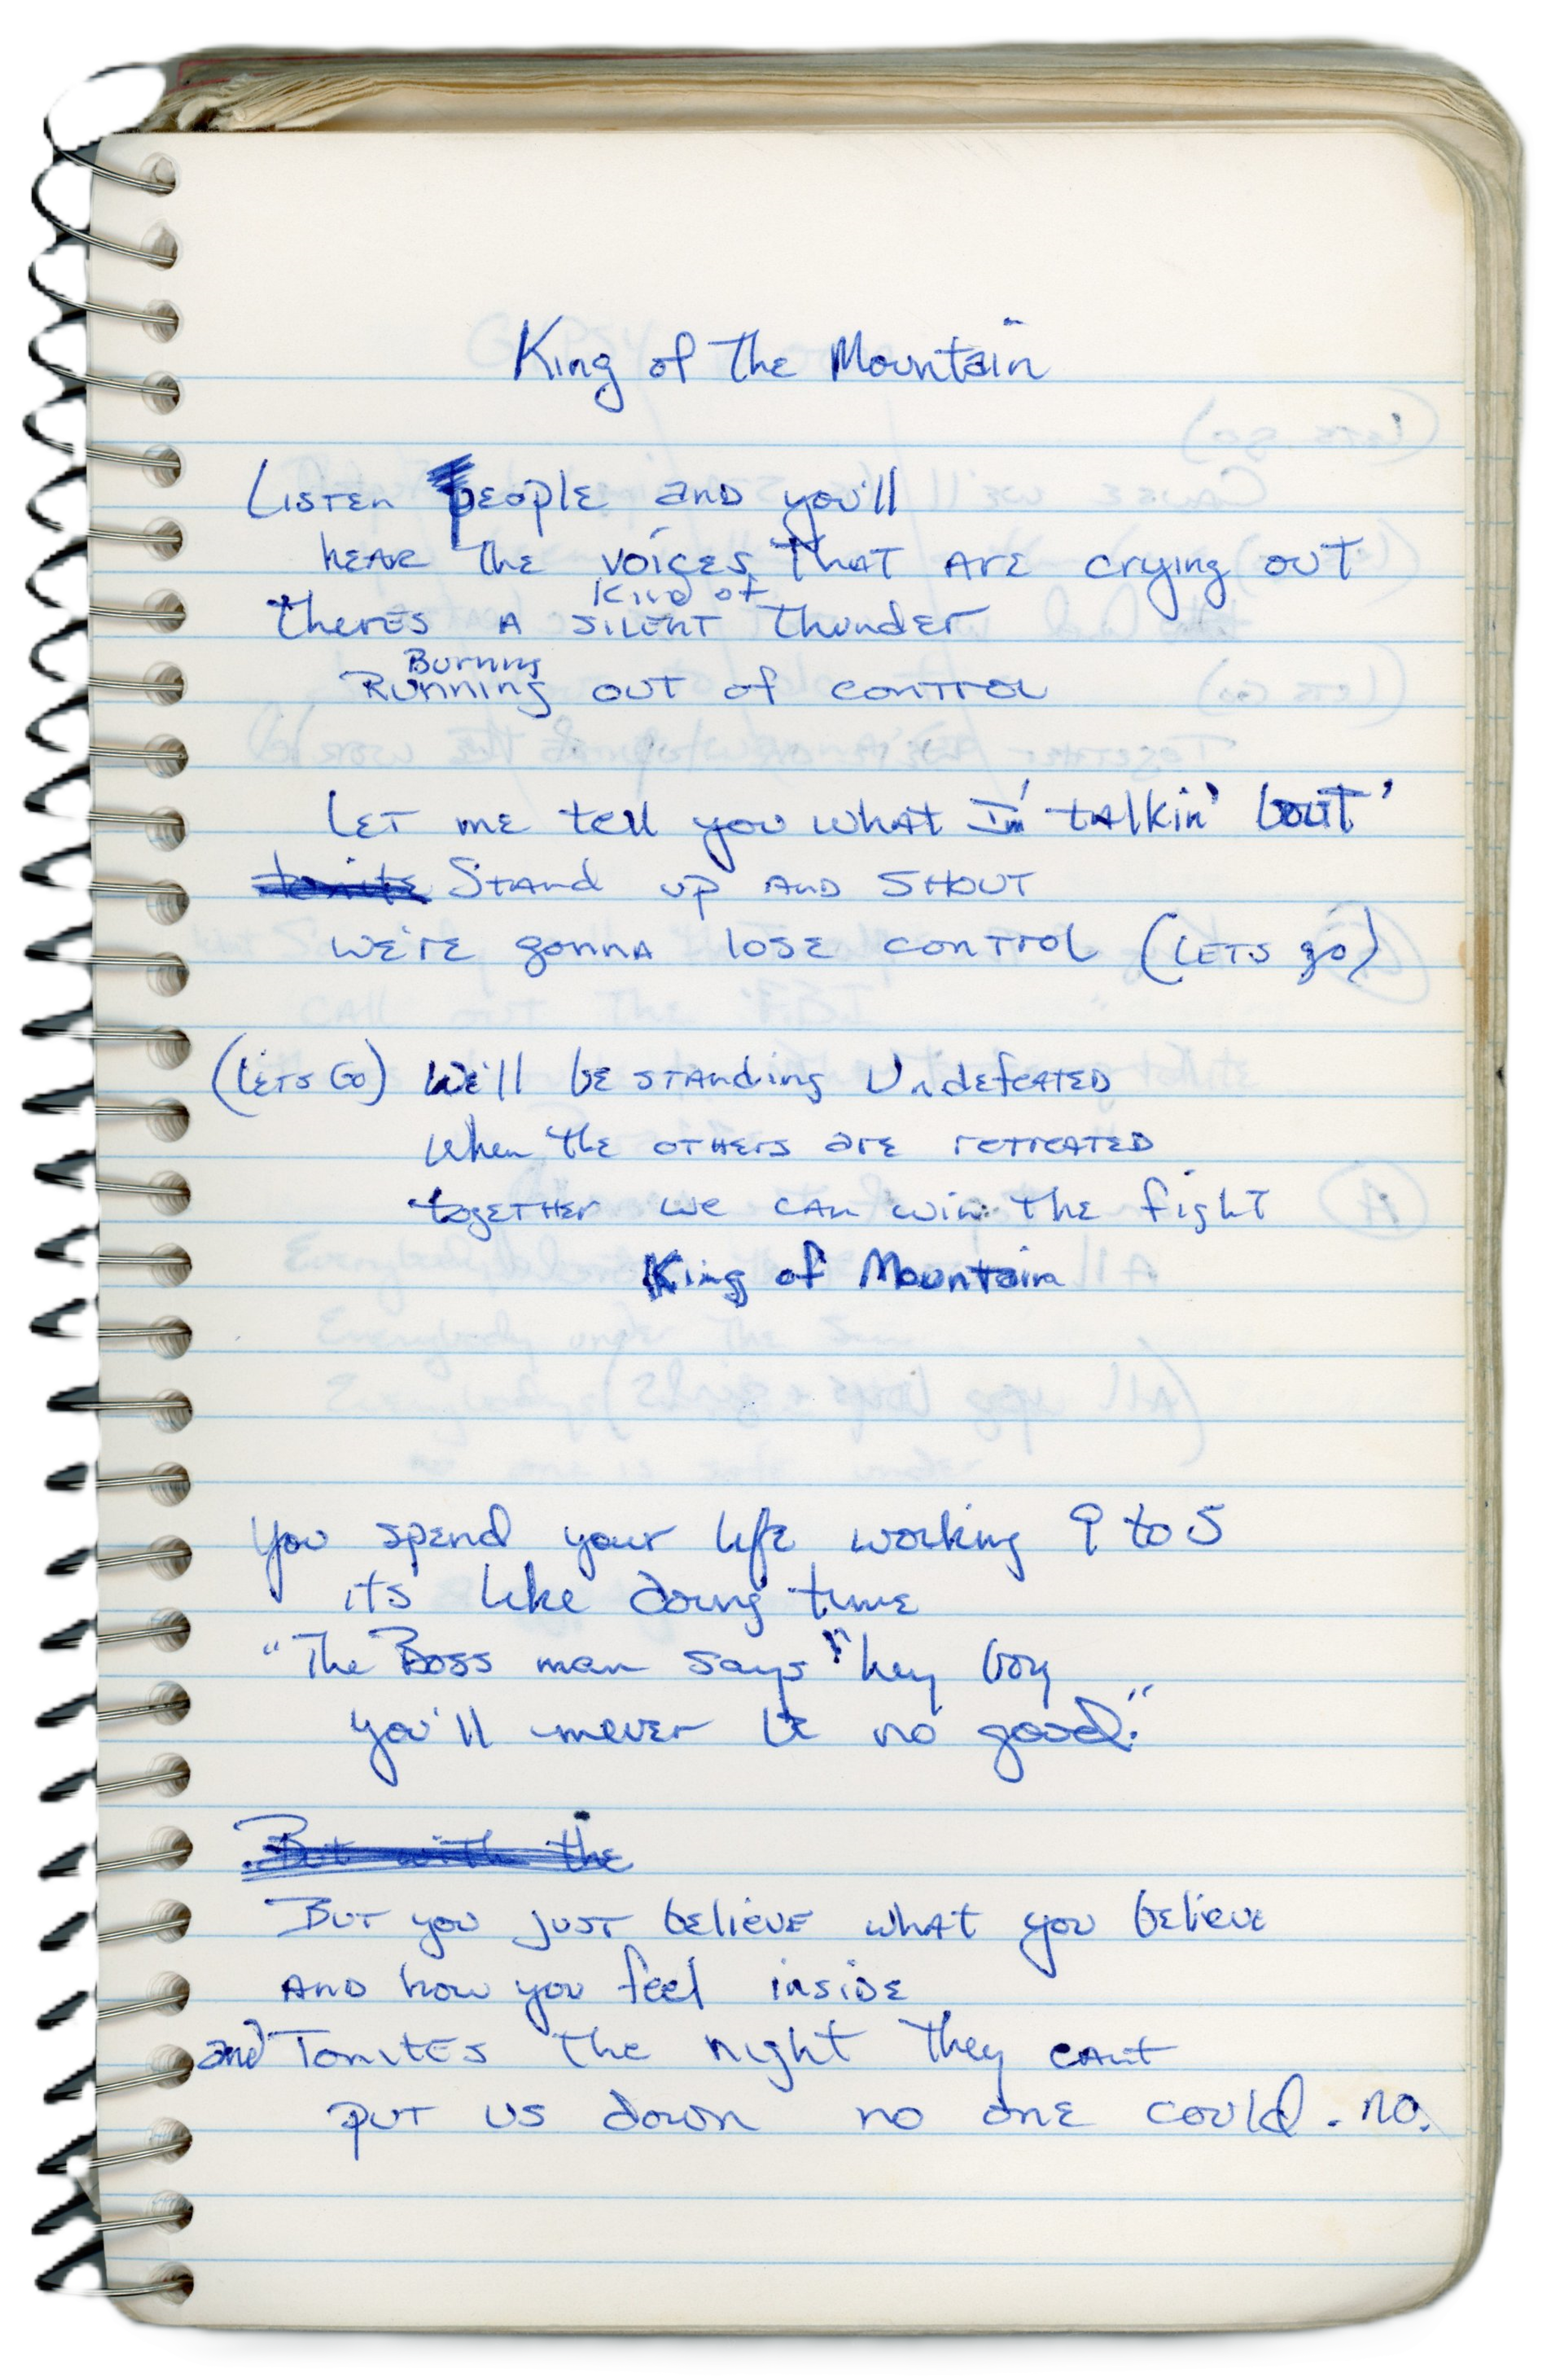 King of the Mountain
Listen people and you'll
hear the voices that are crying out
kind of
theres a silent thunder
Burning
Running out of control
Let me tell you what I'm talkin' bout'
tonite Stand up and SHOUT
we're gonna lose control (Lets go)
(Lets Go) We'll be standing Undefeated
when the others are retreated
together we can win the fight
King of Mountain
You spend your life working 9 to 5
its like doing time
"The Boss man says "hey boy
you'll never be no good."
But with the
But you just believe what you believe
And how you feel inside
and Tonites the night they cant
put us down no one could. no.